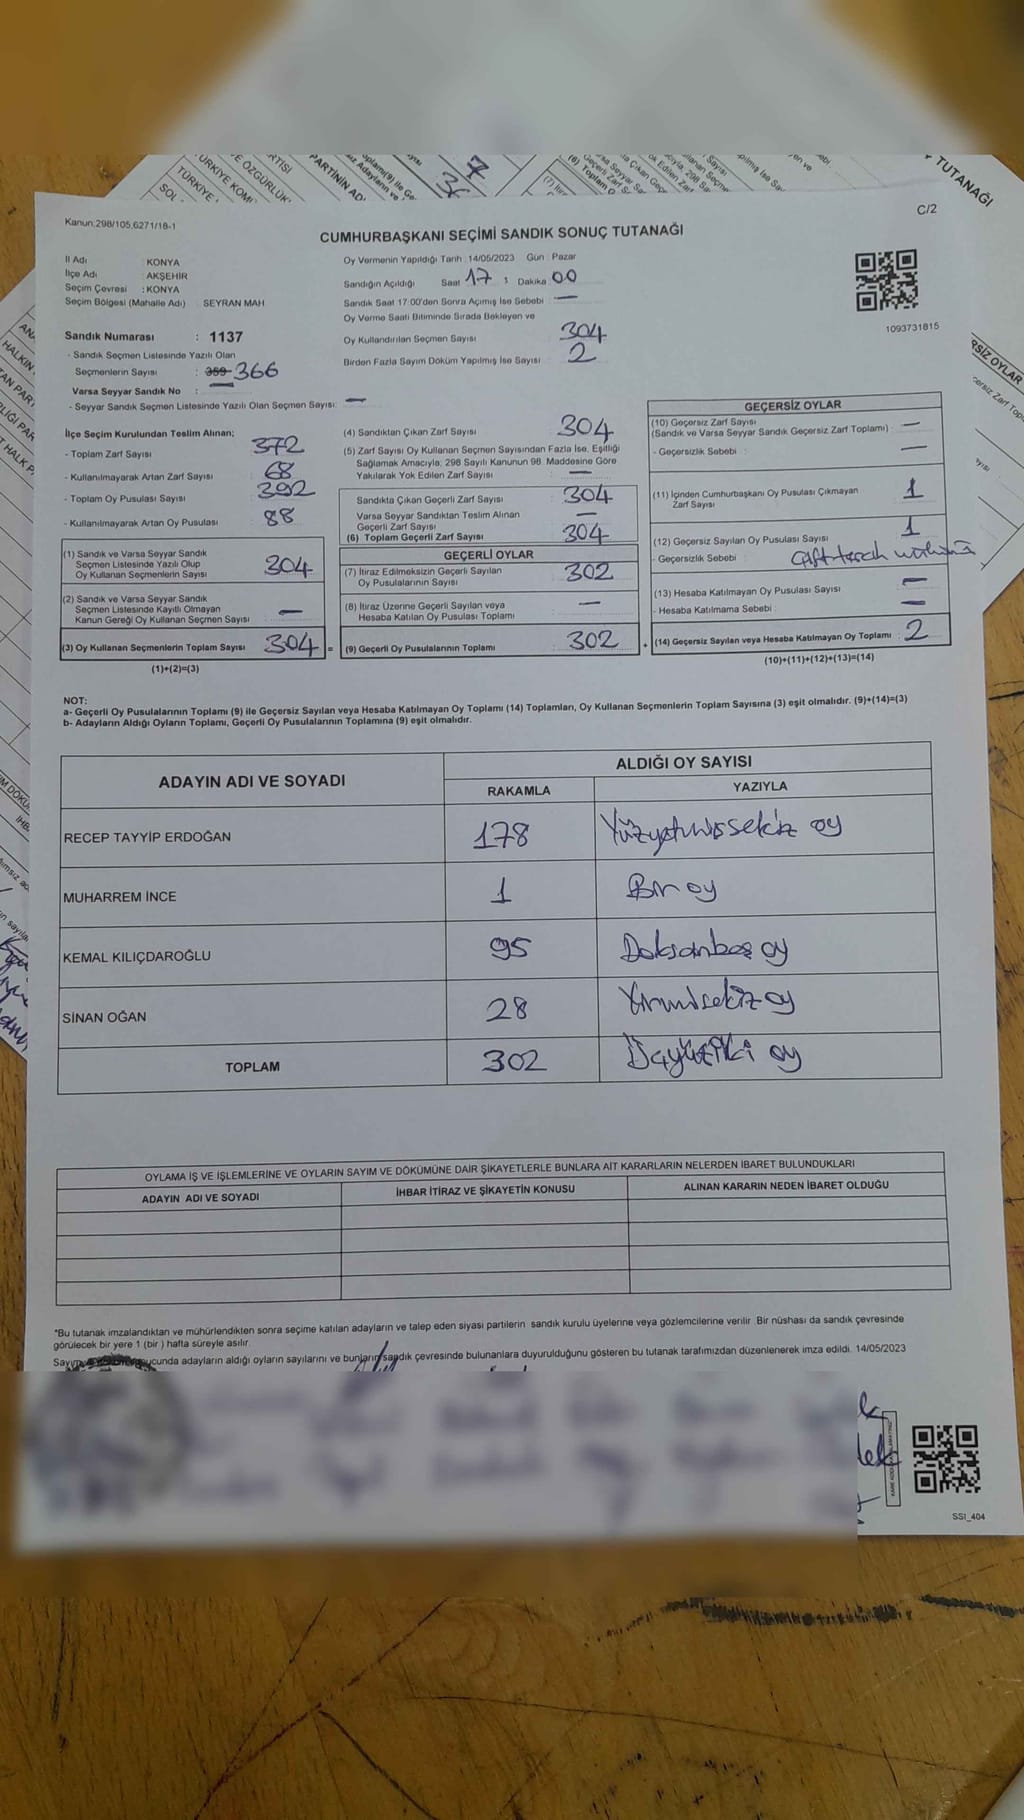 TUTANAĞI
C/2
Kanun:298/105,6271/18-1
CUMHURBAŞKANI SEÇİMİ SANDIK SONUÇ TUTANAĞI
İl Adı : KONYA
İlçe Adı : AKŞEHİR
Seçim Çevresi : KONYA
Seçim Bölgesi (Mahalle Adı) : SEYRAN MAH
Sandık Numarası : 1137
- Sandık Seçmen Listesinde Yazılı Olan
Seçmenlerin Sayısı : 359 366
Varsa Seyyar Sandık No : —
- Seyyar Sandık Seçmen Listesinde Yazılı Olan Seçmen Sayısı: —
Oy Vermenin Yapıldığı Tarih : 14/05/2023 Gün : Pazar
Sandığın Açıldığı Saat 17 : Dakika 00
Sandık Saat 17:00'den Sonra Açımış İse Sebebi : —
Oy Verme Saati Bitiminde Sırada Bekleyen ve
Oy Kullandırılan Seçmen Sayısı : 304
Birden Fazla Sayım Döküm Yapılmış İse Sayısı : 2
1093731815
İlçe Seçim Kurulundan Teslim Alınan;
- Toplam Zarf Sayısı : 372
- Kullanılmayarak Artan Zarf Sayısı : 68
- Toplam Oy Pusulası Sayısı : 392
- Kullanılmayarak Artan Oy Pusulası : 88
(1) Sandık ve Varsa Seyyar Sandık
Seçmen Listesinde Yazılı Olup
Oy Kullanan Seçmenlerin Sayısı : 304
(2) Sandık ve Varsa Seyyar Sandık
Seçmen Listesinde Kayıtlı Olmayan
Kanun Gereği Oy Kullanan Seçmen Sayısı : —
(3) Oy Kullanan Seçmenlerin Toplam Sayısı : 304 =
(1)+(2)=(3)
(4) Sandıktan Çıkan Zarf Sayısı : 304
(5) Zarf Sayısı Oy Kullanan Seçmen Sayısından Fazla İse, Eşitliği
Sağlamak Amacıyla, 298 Sayılı Kanunun 98. Maddesine Göre
Yakılarak Yok Edilen Zarf Sayısı : —
Sandıkta Çıkan Geçerli Zarf Sayısı : 304
Varsa Seyyar Sandıktan Teslim Alınan
Geçerli Zarf Sayısı : —
(6) Toplam Geçerli Zarf Sayısı : 304
GEÇERLİ OYLAR
(7) İtiraz Edilmeksizin Geçerli Sayılan
Oy Pusulalarının Sayısı : 302
(8) İtiraz Üzerine Geçerli Sayılan veya
Hesaba Katılan Oy Pusulası Toplamı : —
(9) Geçerli Oy Pusulalarının Toplamı : 302 +
GEÇERSİZ OYLAR
(10) Geçersiz Zarf Sayısı
(Sandık ve Varsa Seyyar Sandık Geçersiz Zarf Toplamı) : —
- Geçersizlik Sebebi : —
(11) İçinden Cumhurbaşkanı Oy Pusulası Çıkmayan
Zarf Sayısı : 1
(12) Geçersiz Sayılan Oy Pusulası Sayısı : 1
- Geçersizlik Sebebi : Çift tercih
(13) Hesaba Katılmayan Oy Pusulası Sayısı : —
- Hesaba Katılmama Sebebi : —
(14) Geçersiz Sayılan veya Hesaba Katılmayan Oy Toplamı : 2
(10)+(11)+(12)+(13)=(14)
NOT:
a- Geçerli Oy Pusulalarının Toplamı (9) ile Geçersiz Sayılan veya Hesaba Katılmayan Oy Toplamı (14) Toplamları, Oy Kullanan Seçmenlerin Toplam Sayısına (3) eşit olmalıdır. (9)+(14)=(3)
b- Adayların Aldığı Oyların Toplamı, Geçerli Oy Pusulalarının Toplamına (9) eşit olmalıdır.
ADAYIN ADI VE SOYADI
ALDIĞI OY SAYISI
RAKAMLA YAZIYLA
RECEP TAYYİP ERDOĞAN 178 Yüzyetmişsekiz oy
MUHARREM İNCE 1 Bir oy
KEMAL KILIÇDAROĞLU 95 Doksanbeş oy
SİNAN OĞAN 28 Yirmisekiz oy
TOPLAM 302 Üçyüziki oy
OYLAMA İŞ VE İŞLEMLERİNE VE OYLARIN SAYIM VE DÖKÜMÜNE DAİR ŞİKAYETLERLE BUNLARA AİT KARARLARIN NELERDEN İBARET BULUNDUKLARI
ADAYIN ADI VE SOYADI İHBAR İTİRAZ VE ŞİKAYETİN KONUSU ALINAN KARARIN NEDEN İBARET OLDUĞU
*Bu tutanak imzalandıktan ve mühürlendikten sonra seçime katılan adayların ve talep eden siyasi partilerin sandık kurulu üyelerine veya gözlemcilerine verilir. Bir nüshası da sandık çevresinde
görülecek bir yere 1 (bir) hafta süreyle asılır.
ucunda adayların aldığı oyların sayılarını ve bunların sandık çevresinde bulunanlara duyurulduğunu gösteren bu tutanak tarafımızdan düzenlenerek imza edildi. 14/05/2023
SSI_404